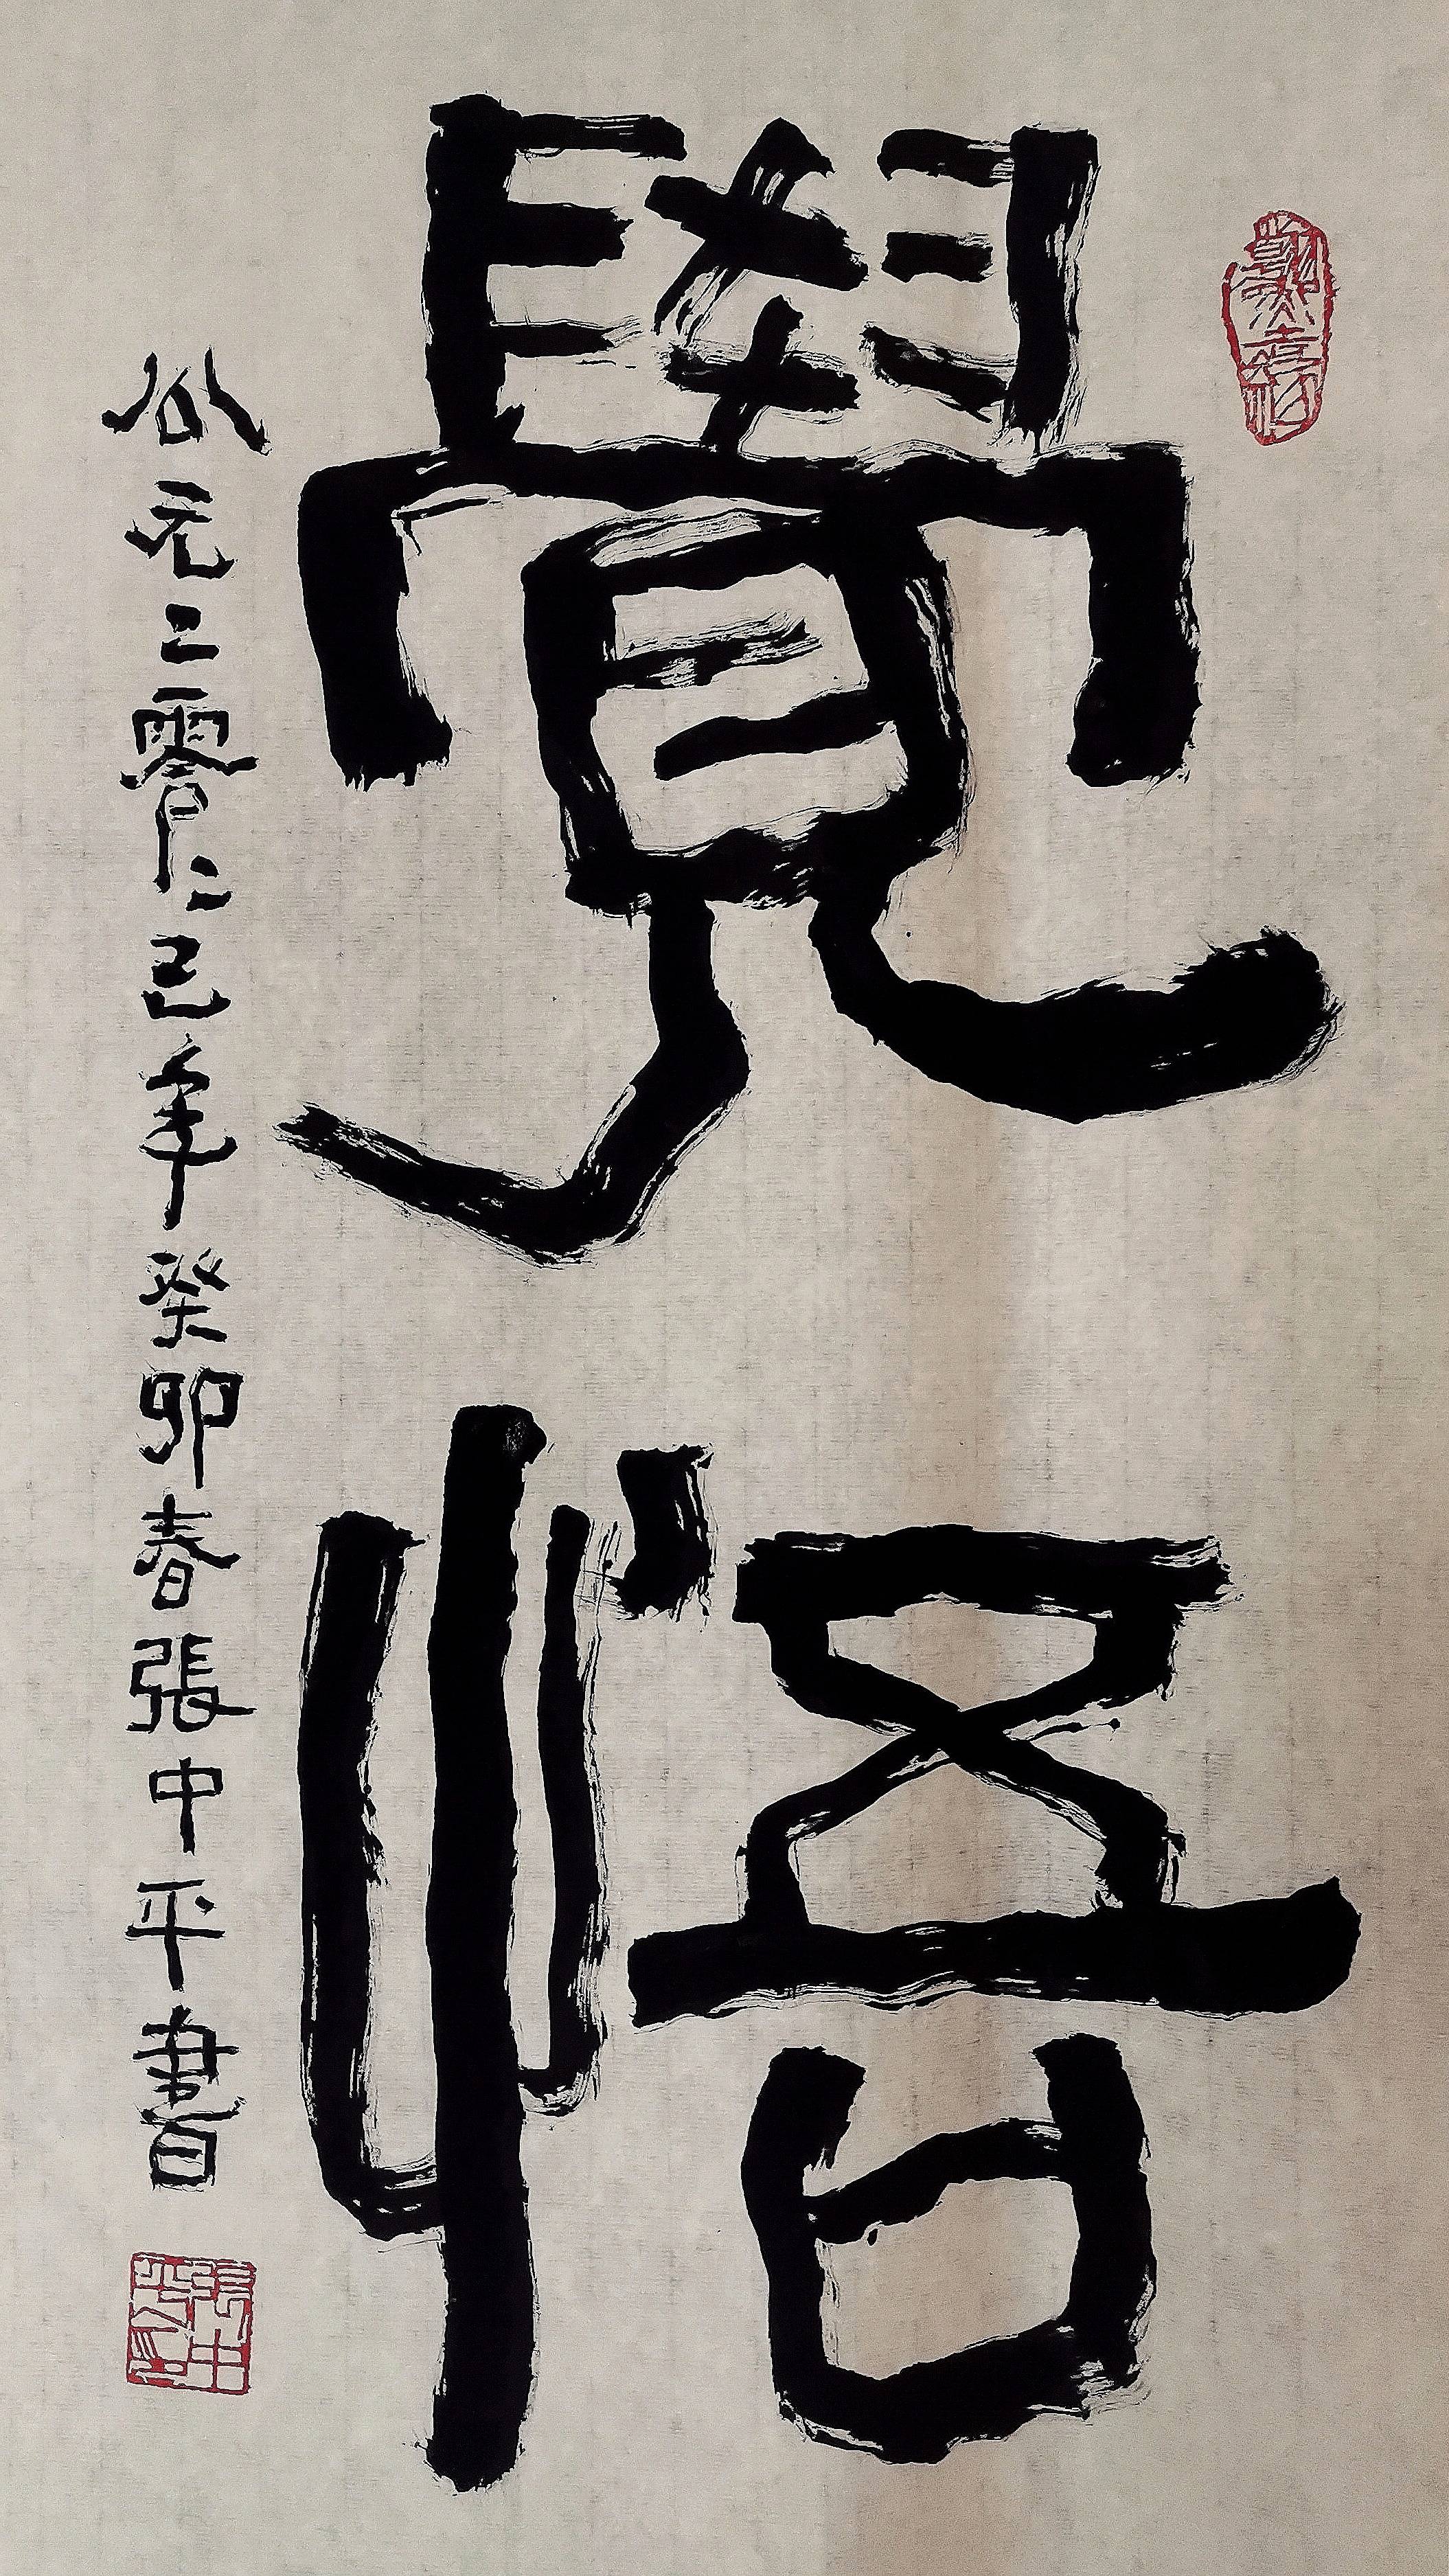 覺悟
公元二零二三年癸卯春張中平書